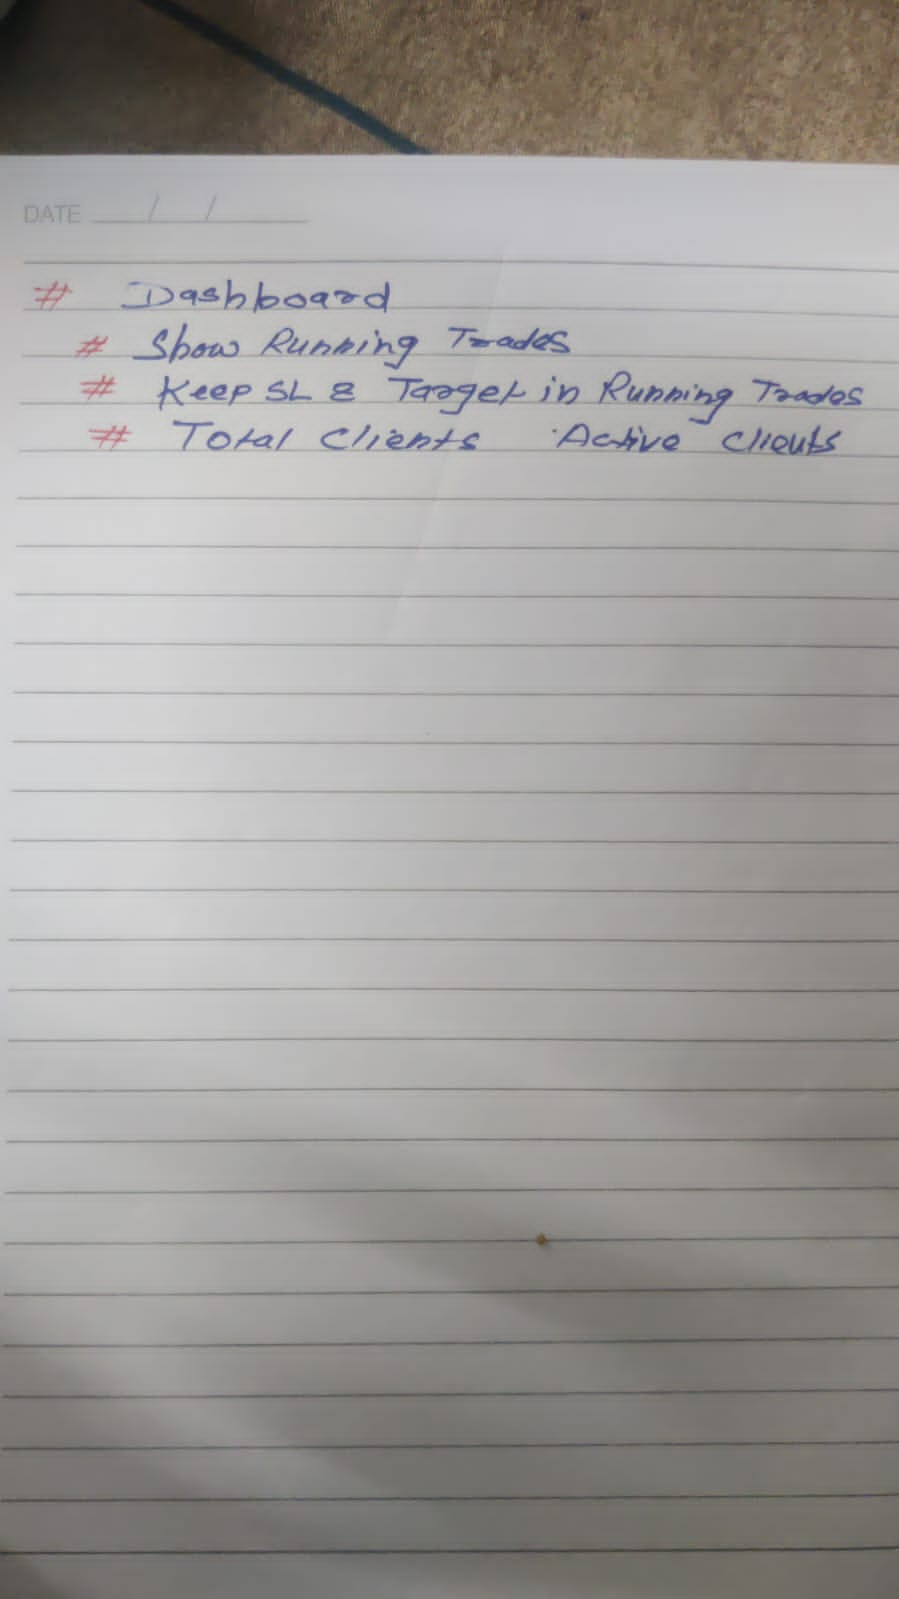 DATE / /
# Dashboard
# Show Running Trades
# Keep SL & Target in Running Trades
# Total Clients Active Clients